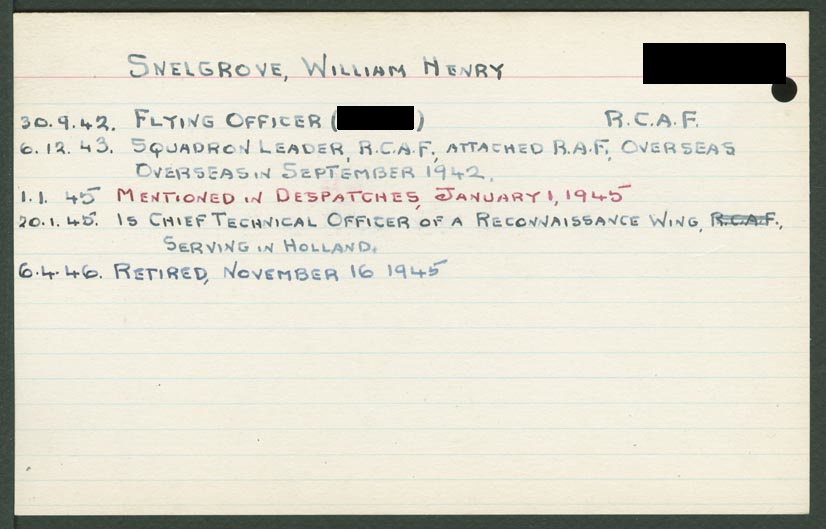 SNELGROVE, WILLIAM HENRY
30.9.42. FLYING OFFICER ( ) R.C.A.F.
6.12.43. SQUADRON LEADER, R.C.A.F., ATTACHED R.A.F., OVERSEAS
OVERSEAS IN SEPTEMBER 1942.
1.1.45 MENTIONED IN DESPATCHES, JANUARY 1, 1945
20.1.45. IS CHIEF TECHNICAL OFFICER OF A RECONNAISSANCE WING, R.C.A.F.,
SERVING IN HOLLAND.
6.4.46. RETIRED, NOVEMBER 16 1945